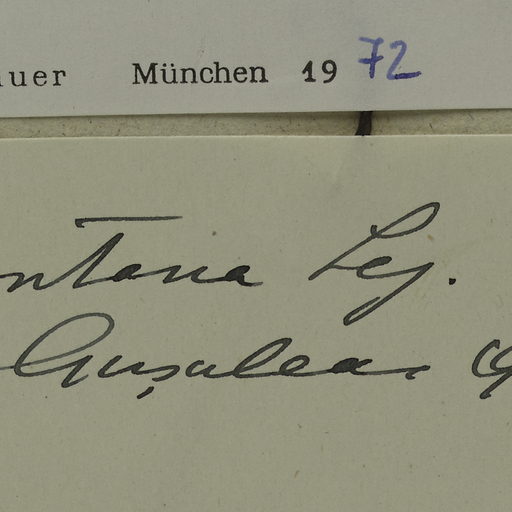 uer München 19 72
ntana Lej.
Gușuleac